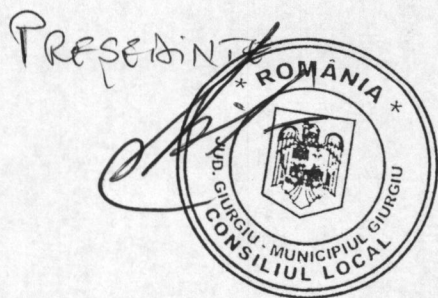 PREȘEDINTE
* ROMÂNIA *
JUD. GIURGIU - MUNICIPIUL GIURGIU
CONSILIUL LOCAL